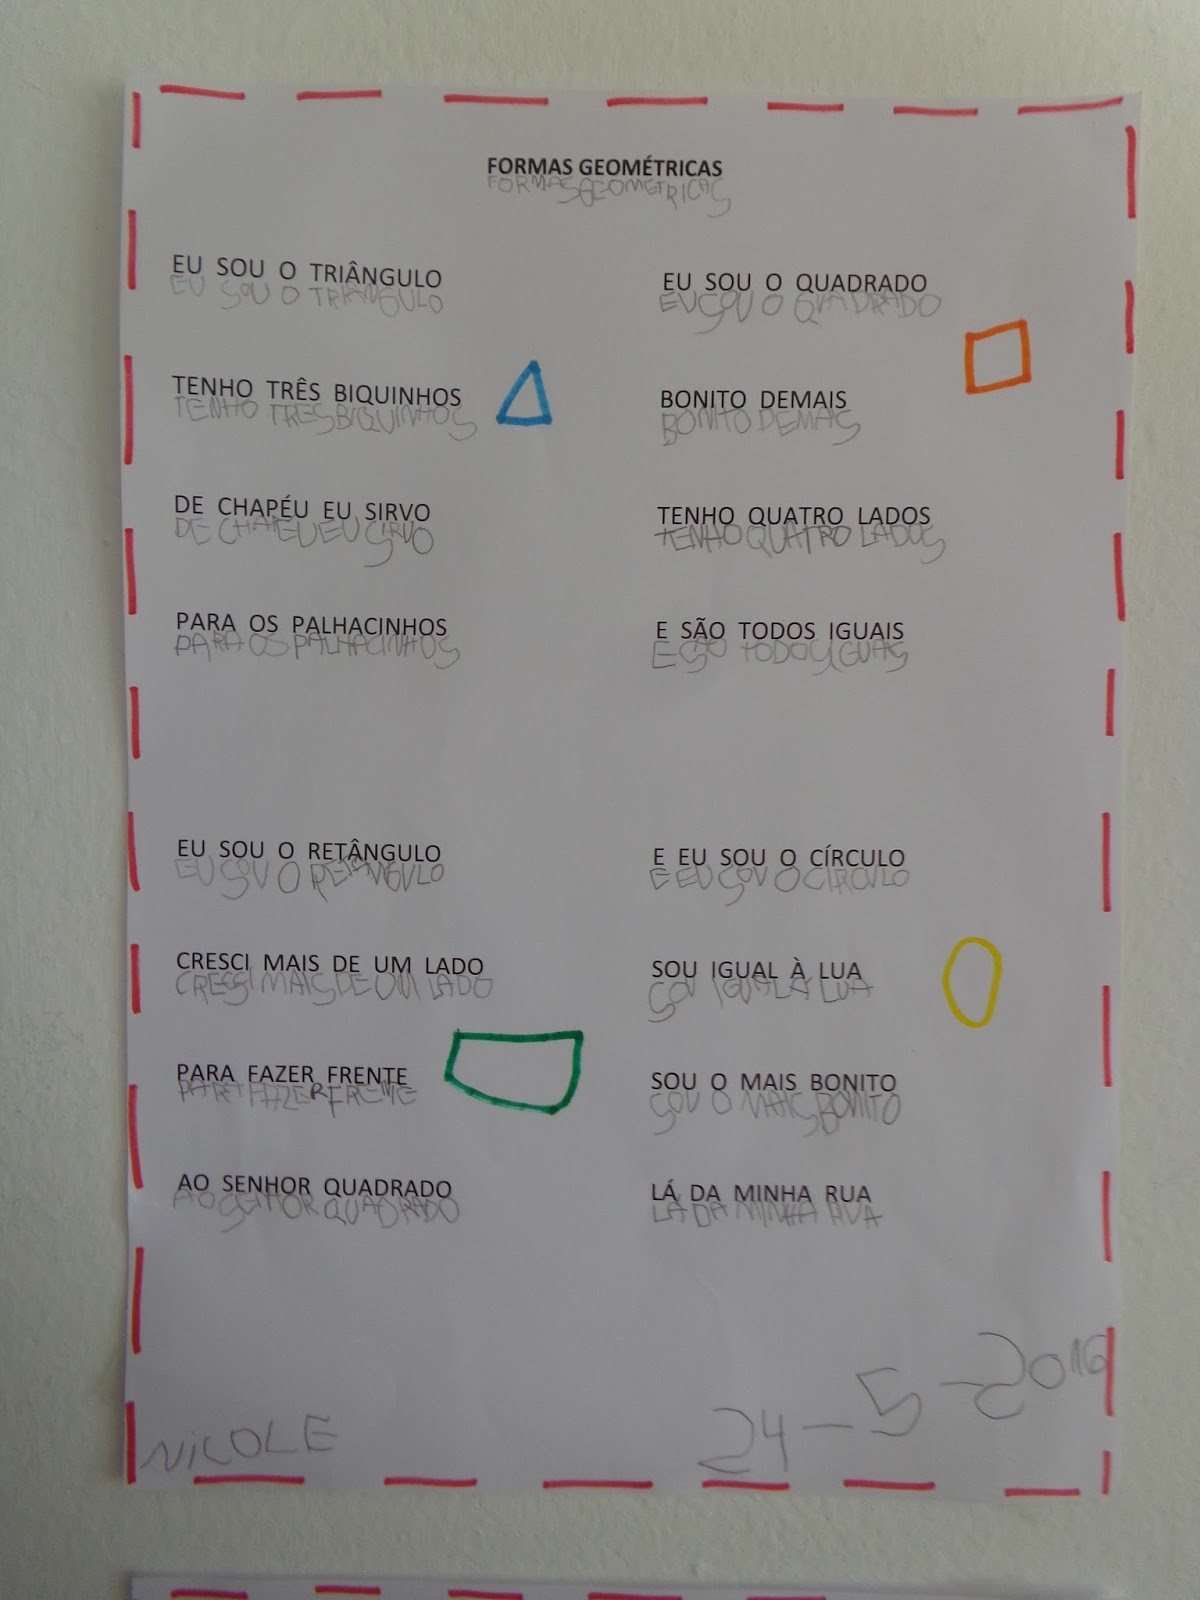 FORMAS GEOMÉTRICAS
FORMAS GEOMETRICAS
EU SOU O TRIÂNGULO
EU SOU O TRIÂNGULO
TENHO TRÊS BIQUINHOS
TENHO TRES BIQUINHOS
DE CHAPÉU EU SIRVO
DE CHAPEU EU SIRVO
PARA OS PALHACINHOS
PARA OS PALHACINHOS
EU SOU O QUADRADO
EU SOU O QUADRADO
BONITO DEMAIS
BONITO DEMAS
TENHO QUATRO LADOS
TENHO QUATRO LADOS
E SÃO TODOS IGUAIS
E SO TODOS IGUAS
EU SOU O RETÂNGULO
EU SOU O RETANGULO
CRESCI MAIS DE UM LADO
CRESSI MAIS DE UM LADO
PARA FAZER FRENTE
PARA FAZER FREME
AO SENHOR QUADRADO
AO SENHOR QUADRADO
E EU SOU O CÍRCULO
E EU SOU O CÍRCULO
SOU IGUAL À LUA
SOU IGUAL À LUA
SOU O MAIS BONITO
SOU O MAIS BONITO
LÁ DA MINHA RUA
LÁ DA MINHA RUA
NICOLE
24-5-2016